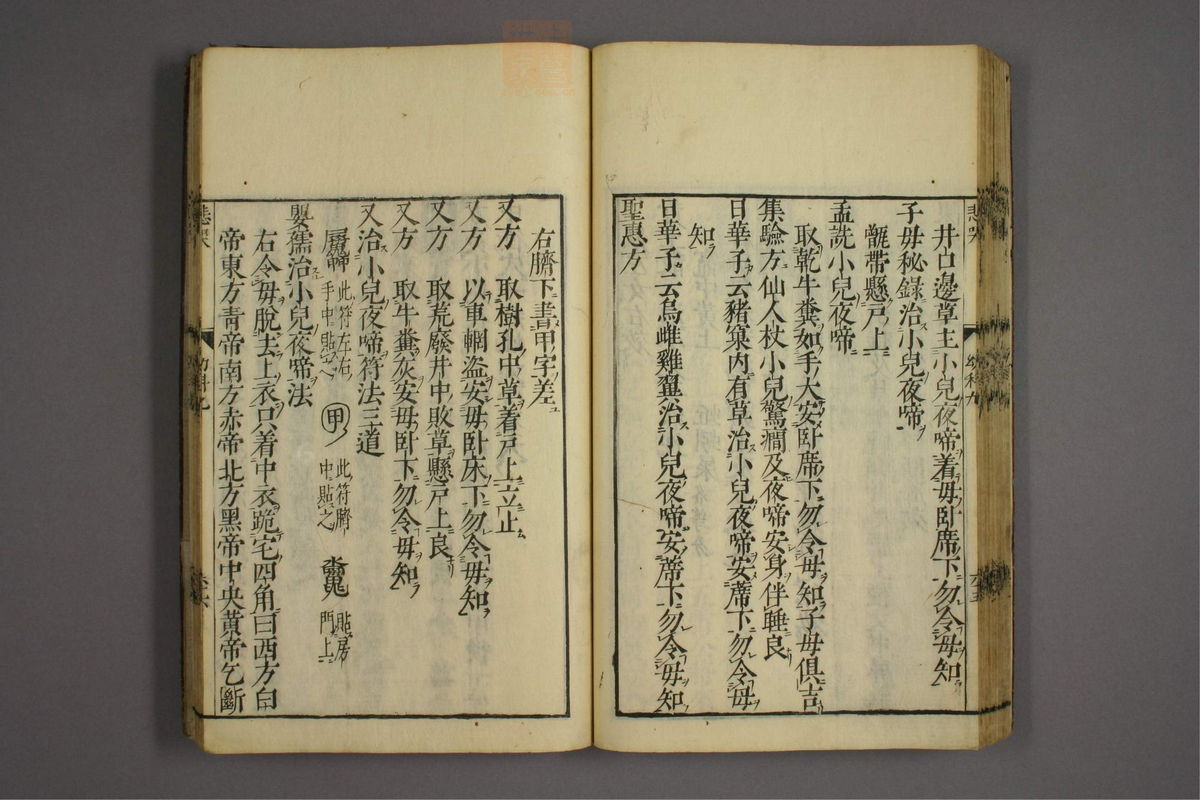 井口邊草主小兒夜啼着毋卧席下勿令毋知
子毋秘錄治小兒夜啼
甑帶懸戶上
孟詵小兒夜啼
取乾牛糞如手大安卧席下勿令毋知子毋俱吉
集驗方仙人杖小兒驚癇及夜啼安身伴睡良
日華子云豬窠内有草治小兒夜啼安蓆下勿令毋
知
日華子云烏雌雞翼治小兒夜啼安蓆下勿令毋知
聖惠方
右臍下書甲字差
又方 取樹孔中草着戶上立止
又方 以車輞盜安毋卧床下勿令毋知
又方 取荒廢井中敗草懸戶上良
又方 取牛糞灰安毋卧下勿令毋知
又治小兒夜啼符法三道
此符左右手中貼之 甲 此符臍中貼之 貼房門上
嬰孺治小兒夜啼法
右令毋脫去上衣只着中衣跪宅四角曰西方白
帝東方青帝南方赤帝北方黑帝中央黃帝乞斷
幼科九